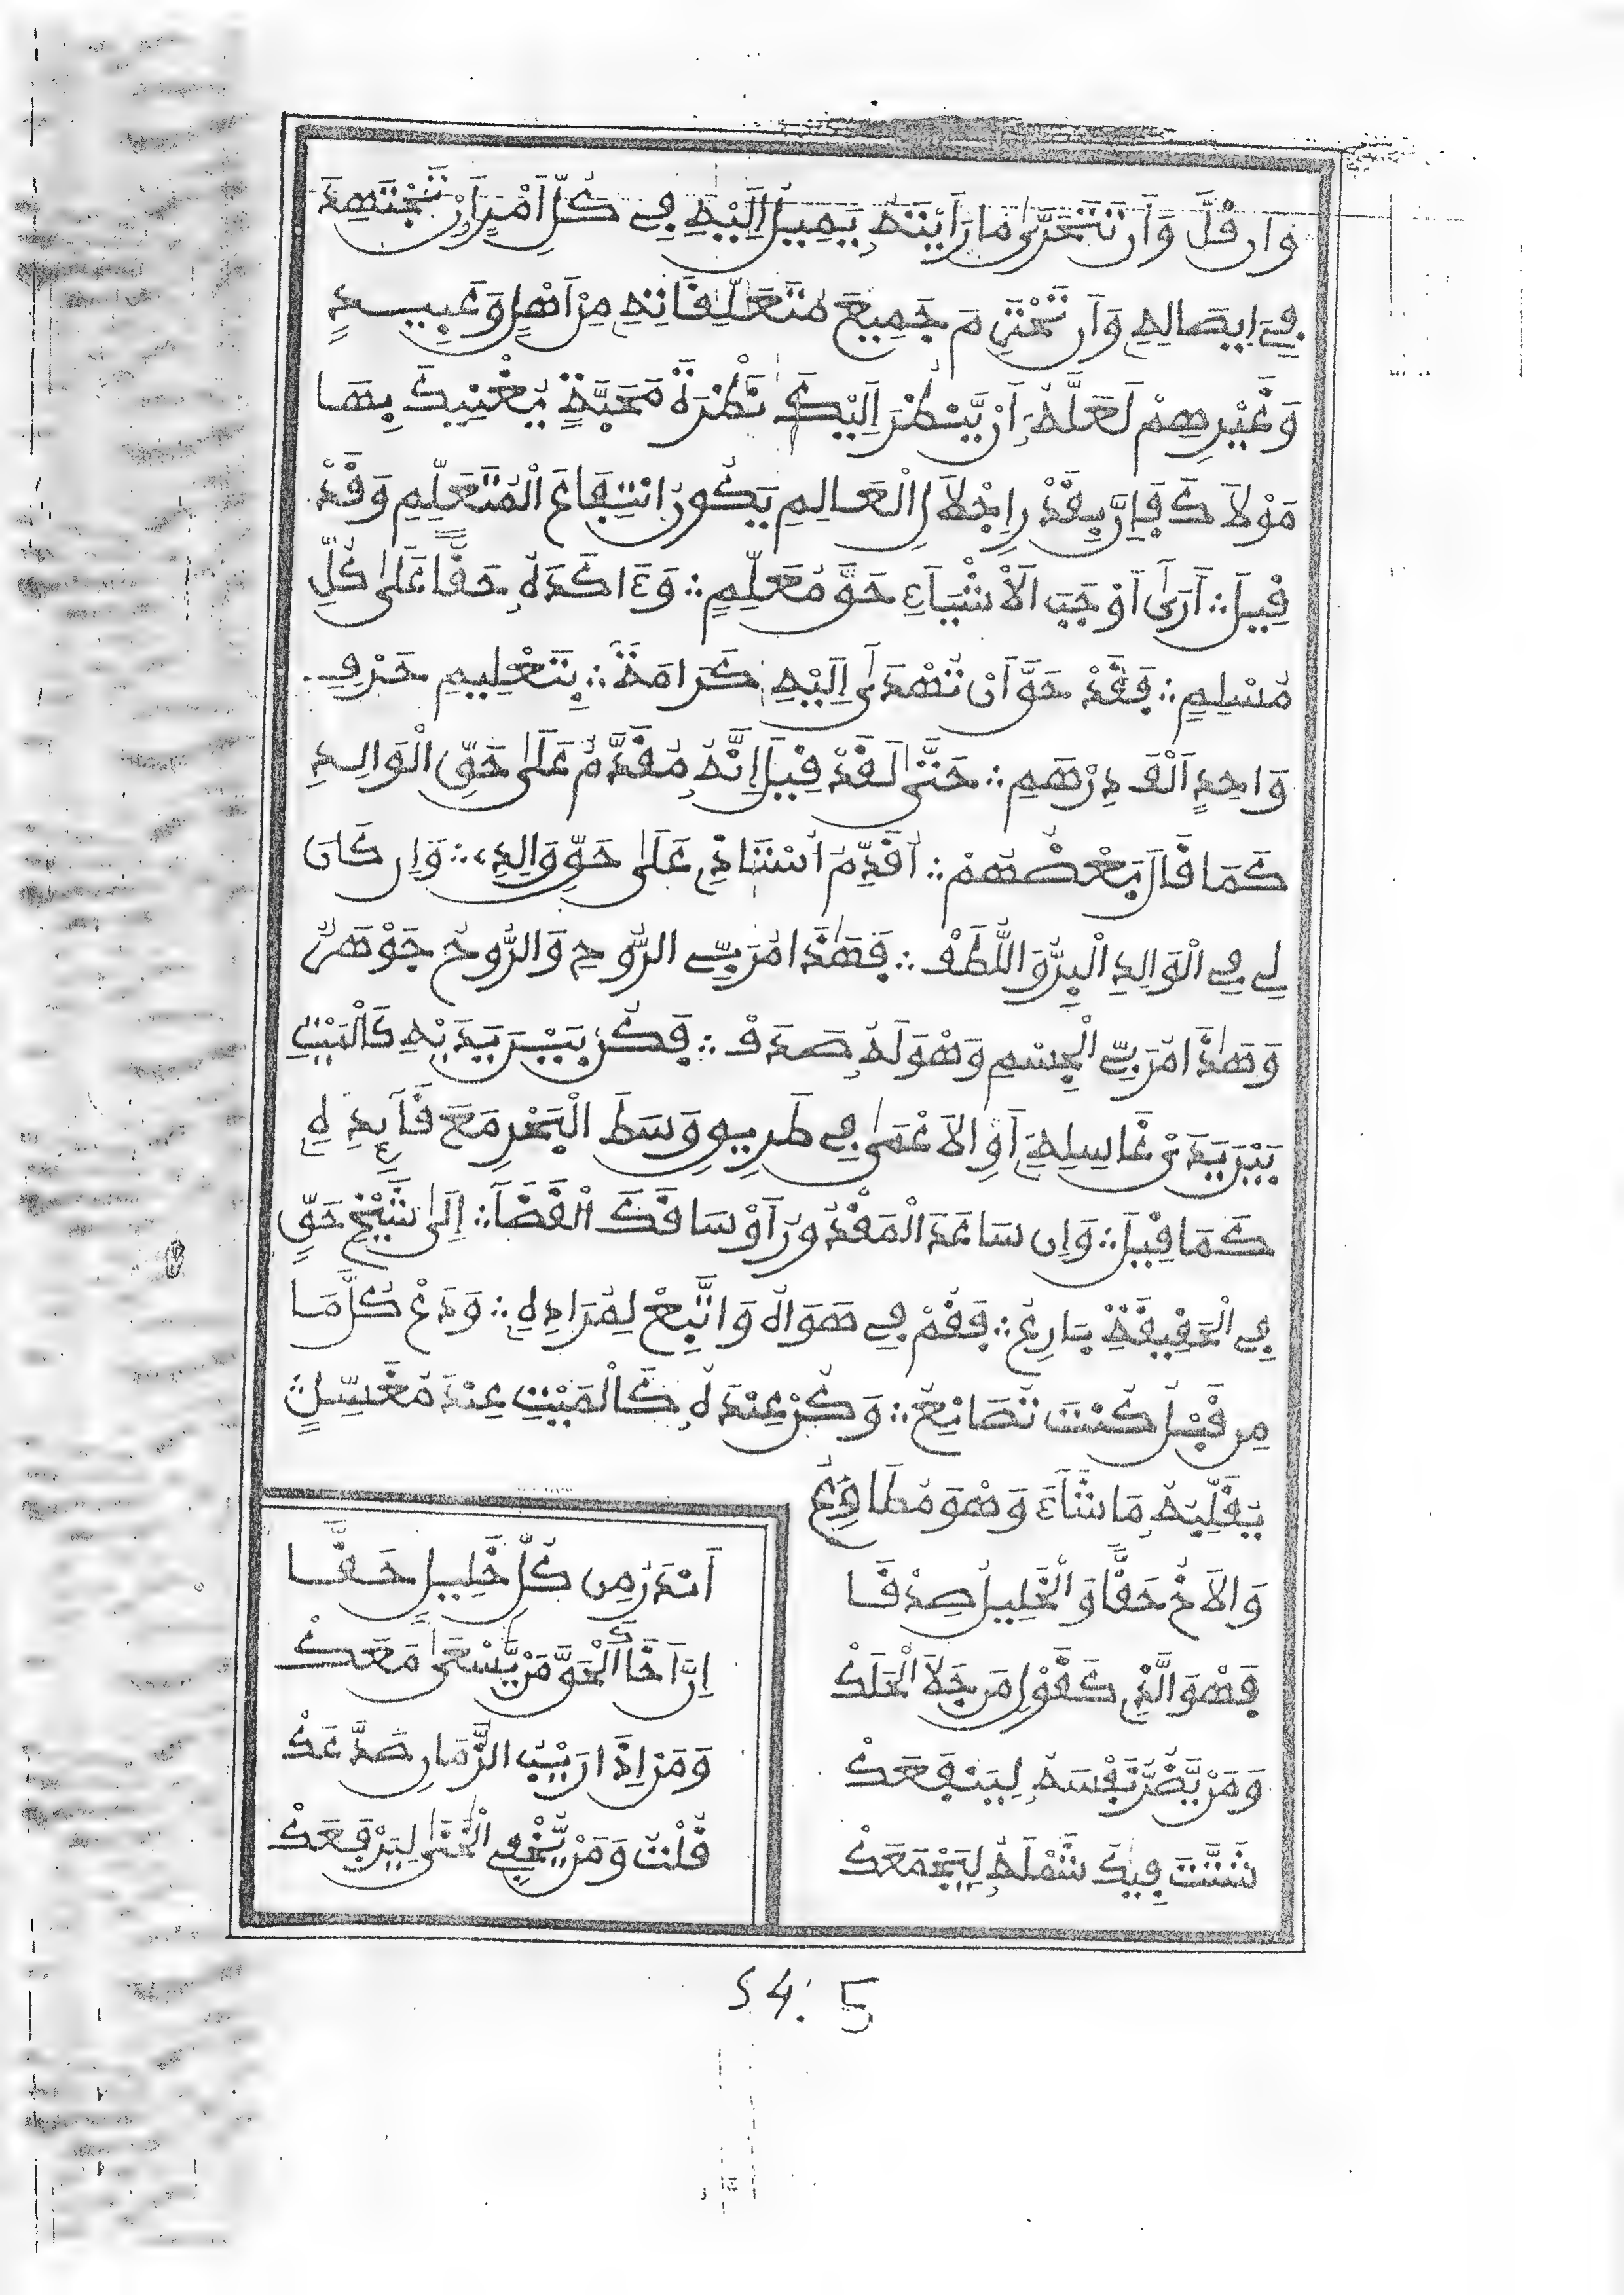 وَاِن قَلَّ وَاَن تَتَحَرَّىٰ مَا رَاَيْتَهُۥ يَمِيلُ اِلَيْهِ فِے كُلِّ اَمْرٍ اَنْ تَجْتَهِدَ
فِےٓ اِيصَالِهِۦ وَاَن تَحْتَرِمَ جَمِيعَ مُتَعَلِّقَاتِهِۦ مِنْ اَهْلٍ وَعَبِيـــدٍ
وَغَيْرِهِمْ لَعَلَّهُۥٓ أَنْ يَّنْظُرَ اِلَيْكَ نَظْرَةَ مَحَبَّةٍ يُغْنِيكَ بِهَا
مَوْلَاكَ فَإِنَّ بِقَدْرِ اِجْلَالِ الْعَالِمِ يَكُونُ انْتِفَاعُ الْمُتَعَلِّمِ وَقَدْ
قِيلَ ∴ أَرَىٰٓ اَوْجَبَ الَاشْيَآءِ حَقَّ مُعَلِّمٍ ∴ وَءَاكَدَهُۥ حَقًّا عَلَىٰ كُلِّ
مُسْلِمٍ ∴ فَقَدْ حَقَّ اَنْ تُهْدَىٰٓ اِلَيْهِ كَرَامَةً ∴ بِتَعْلِيمِ حَرْفٍ
وَاحِدٍ اَلْفُ دِرْهَمِ ∴ حَتَّىٰ لَقَدْ قِيلَ إِنَّهُۥ مُقَدَّمٌ عَلَىٰ حَقِّ الْوَالِدِ
كَمَا قَالَ بَعْضُهُمْ ∴ اُقَدِّمُ اُسْتَاذِے عَلَىٰ حَقِّ وَالِدِے ∴ وَاِن كَانَ
لِے فِے الْوَالِدِ الْبِرُّ وَاللُّطْفُ ∴ فَهَٰذَا مُرَبِّے الرُّوحِ وَالرُّوحُ جَوْهَرٌ
وَهَٰذَا مُرَبِّے الْجِسْمِ وَهْوَ لَهُۥ صَدَفْ ∴ فَكُنْ بَيْنَ يَدَيْهِ كَالْمَيِّتِ
بَيْنَ يَدَىْ غَاسِلِهِۦٓ أَوِ الَاعْمَىٰ فِے طَرِيقِ وَسَطَ الْبَحْرِ مَعَ قَآئِدِهِۦ
كَمَا قِيلَ ∴ وَاِن سَاعَدَ الْمَقْدُورُ اَوْ سَاقَكَ الْقَضَآ ∴ إِلَىٰ شَيْخِ حَقٍّ
فِے الْحَقِيقَةِ بَارِعُ ∴ فَقُمْ فِے هَوَاهُ وَاتَّبِعْ لِمُرَادِهِۦ ∴ وَدَعْ كُلَّمَا
مِن قَبْلُ كُنْتَ تُصَانِعُ ∴ وَكُنْ عِنْدَهُۥ كَالْمَيْتِ عِنْدَ مُغَسِّلٍ
يُقَلِّبُهُۥ مَا شَآءَ وَهْوَ مُطَاوِعُ
وَالَاخُ حَقًّا وَالْخَلِيلُ صِدْقَا
اَنْدَرُ مِن كُلِّ خَلِيلٍ حَقَّــا
فَهْوَ الَّذِے كَقَوْلِ مَن جَلَا الْحَلَكْ
اِنَّ اَخَاكَ الْحَقَّ مَنْ يَّسْعَىٰ مَعَكْ
وَمَنْ يَّضُرُّ نَفْسَهُۥ لِيَنْفَعَكْ
وَمَنْ اِذَا رَيْبُ الزَّمَانِ صَدَّعَكْ
شَتَّتَ فِيكَ شَمْلَهُۥ لِيَجْمَعَكْ
قُلْتُ وَمَنْ يُّخْفِے الْخَنَىٰ لِيَرْفَعَكْ
54. 5